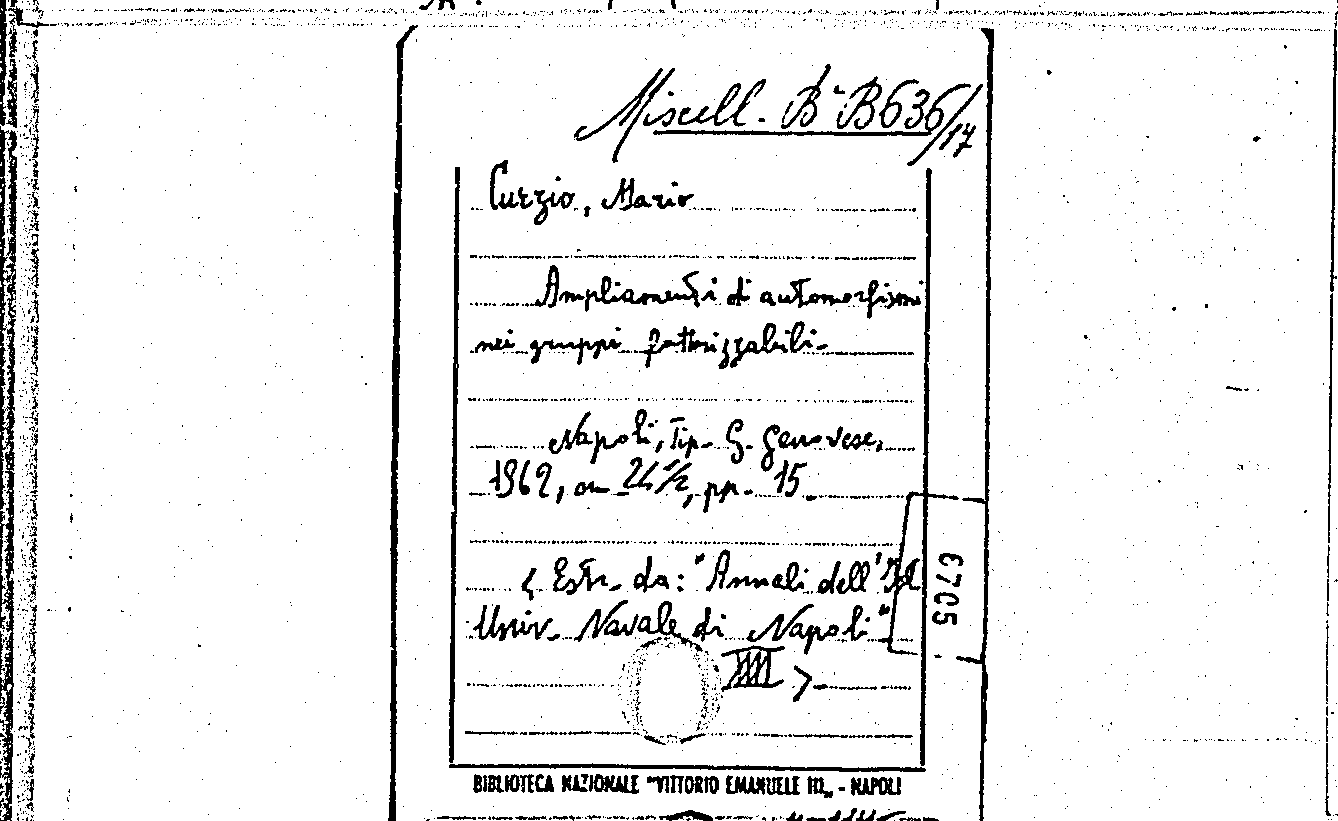 Miscell. Bᵃ B636/17
Curzio, Mario
Ampliamenti di automorfismi
nei gruppi fattorizzabili.
Napoli, Tip. G. Genovese,
1962, cm 24½, pp. 15.
< Estr. da: "Annali dell'Ist.
Univ. Navale di Napoli"
>.
6705
BIBLIOTECA NAZIONALE "VITTORIO EMANUELE III„ - NAPOLI